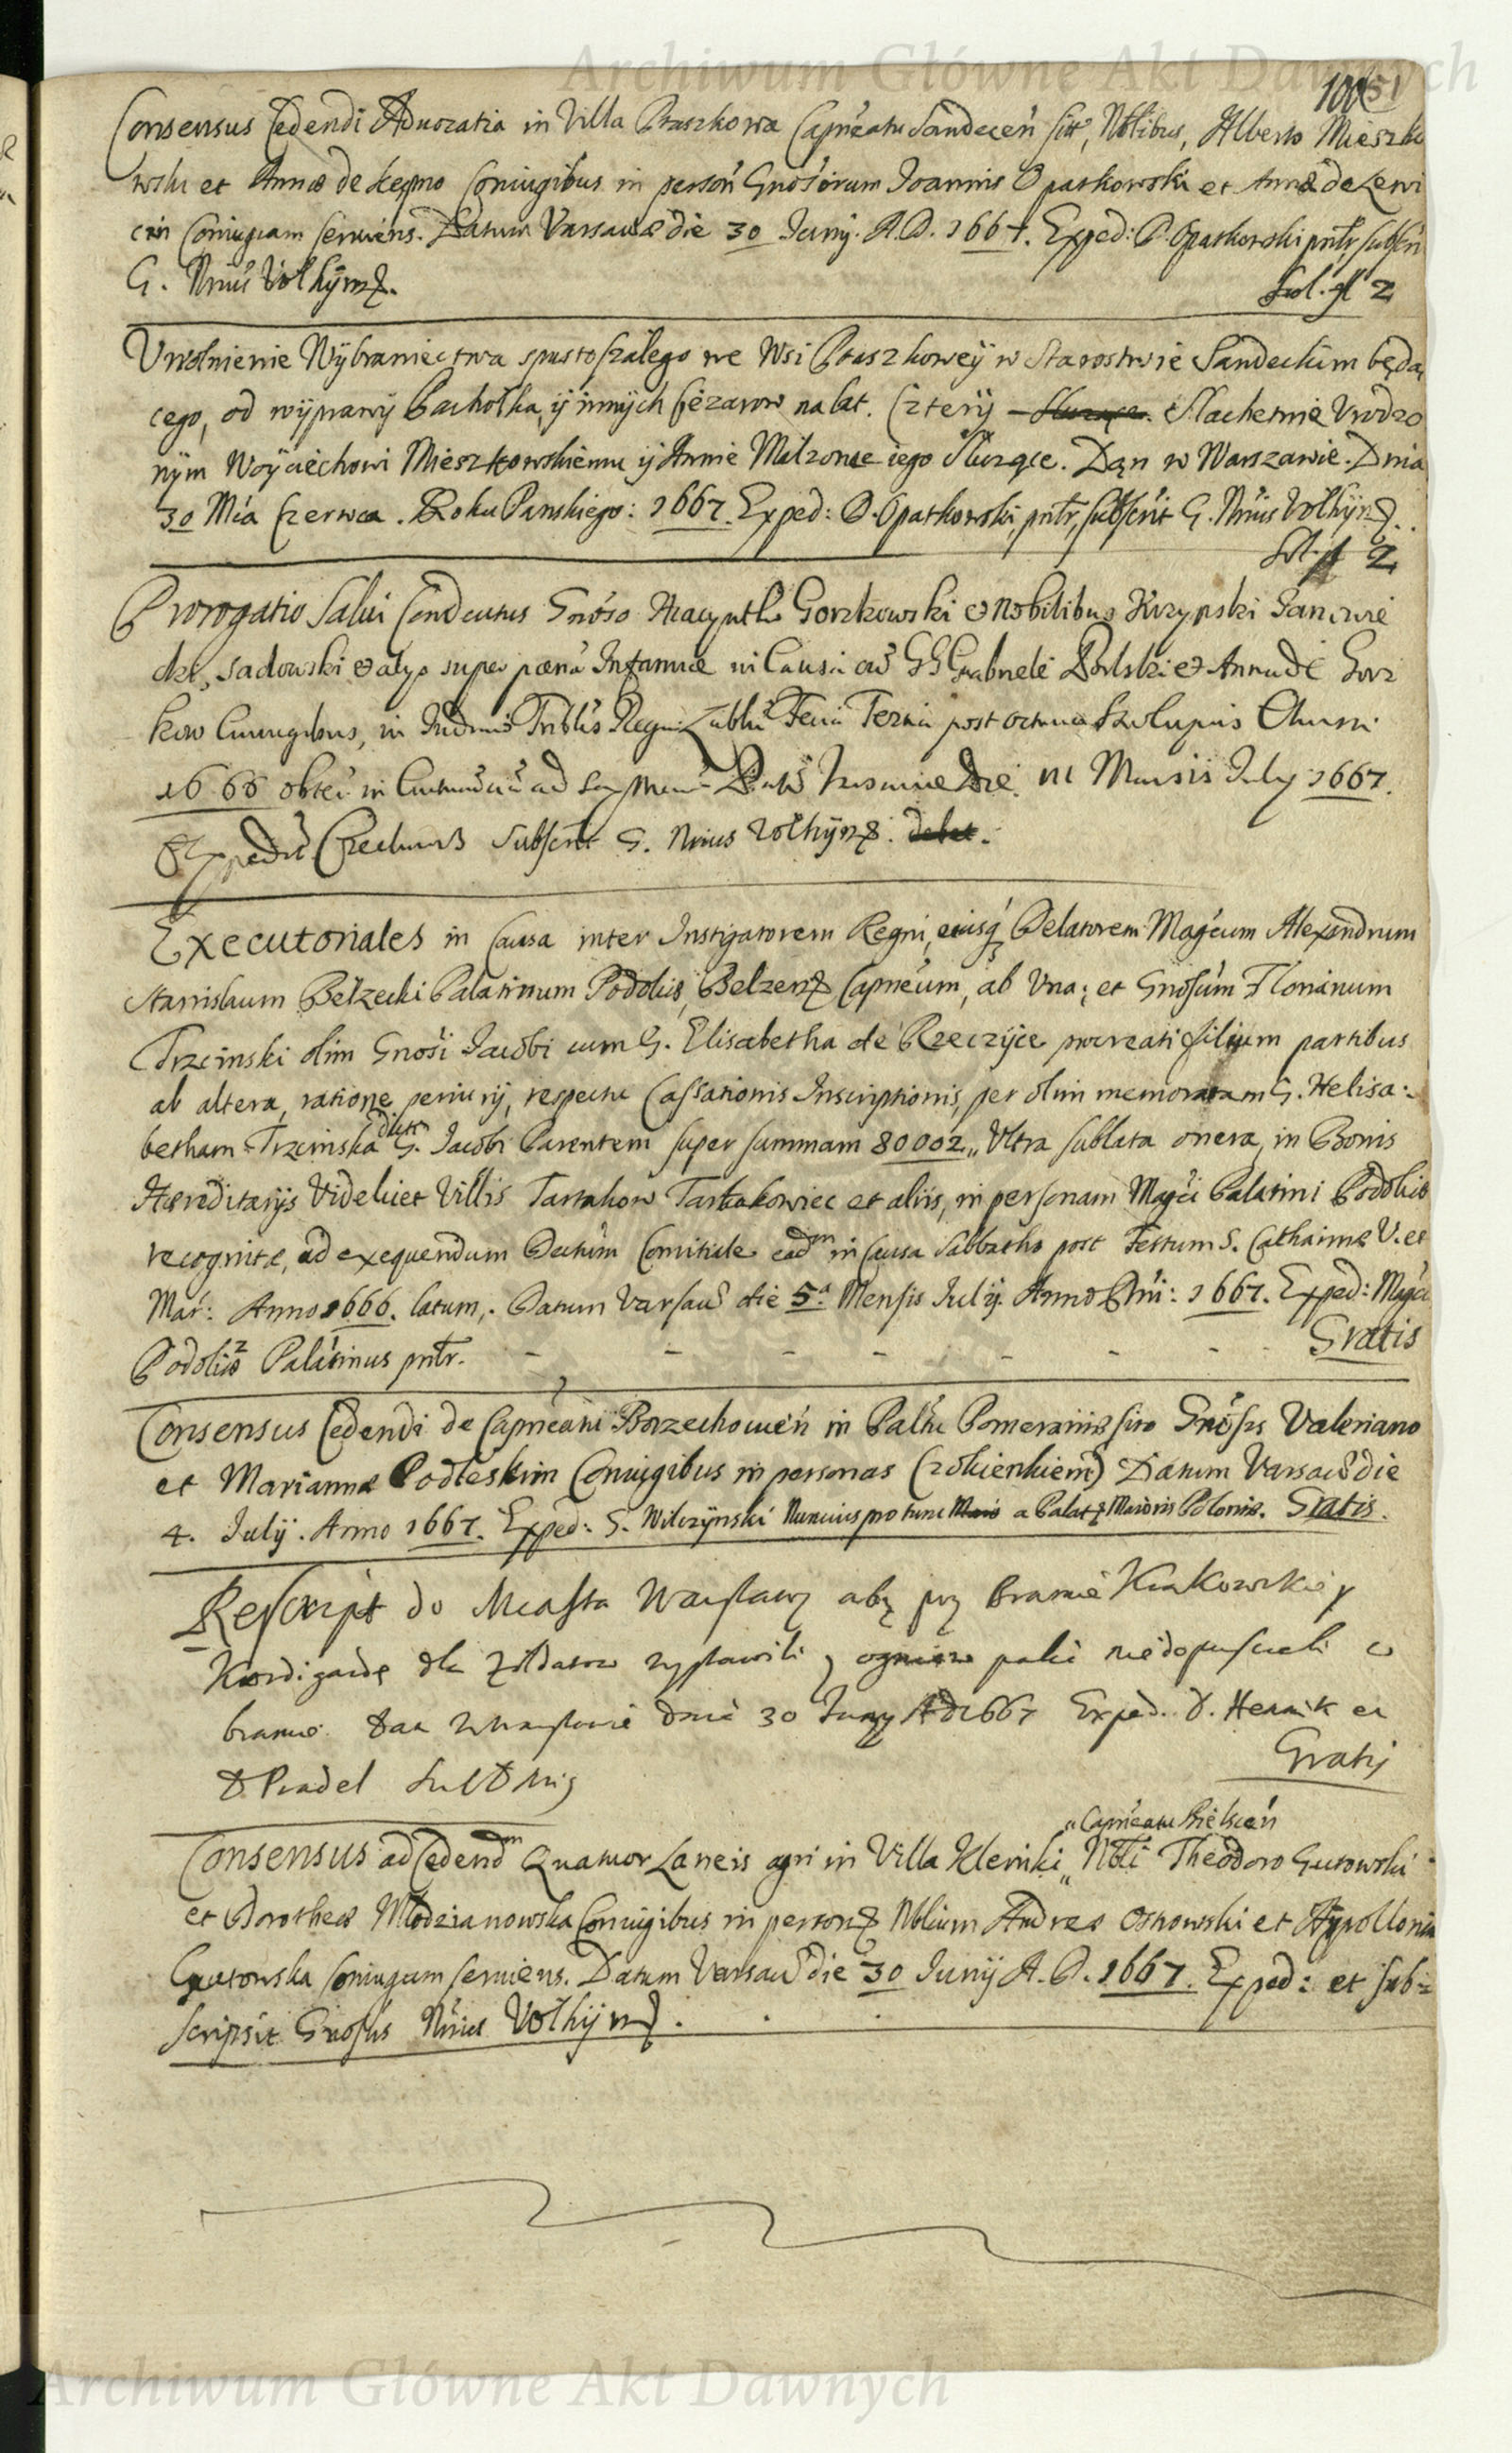 Archiwum Główne Akt Dawnych
51
Consensus Cedendi Advocatia in Villa Ptaszkowa Capneatu Sandecen sitt, Nblibus, Alberto Mieszko
wski et Annæ de Kępno Coniugibus in person Gnosorum Joannis Opatkowski et Annæ de Lewi
czin Coniugum serviens. Datum Varsaviæ die 30 Junij. A.D. 1667. Exped: P. Opatkowski pntr, subscri
G. Nrius Vołhynz.
Sol. fl 2
Uwolnienie Wybraniectwa spustoszałego we Wsi Ptaszkowey w Starostwie Sandeckim będą
cego, od wyprawy Pachołka, ij innych Cięzarow na lat. Cztery Slachetnie Urodzo
nym Woyciechowi Mieszkowskiemu ij Annie Małzonce iego sluzące. Dąn w Warszawie. Dnia
30 Mca Czerwca. Roku Panskiego: 1667. Exped: P. Opatkowski, pntr, subscrit G. Nrius Vołhynz.
Sol. fl 2
Prorogatio Salvi Conductus Gnoso Hiacyntho Gorzkowski et Nobilibus Krzypski Janowie
cki, Sadowski et alys super pœna Infamiæ in Causa cu GG Gabriele et Anna de Gorz
kow Coniugibus, in Triblis Regni Lubli Feria Tertia post
1666 ad in Mensis July 1667.
Expedit Subscrit G. Nrius Vołhynz. debet.
Executoriales in Causa inter Instigatorem Regni, eiusq Delatorem Magcum Alexandrum
Stanislaum Bełzecki Palatinum Podoliæ, Belzenz Capneum, ab Una; et Gnosum Florianum
Trzcinski olim Gnosi Jacobi cum G. Elisabetha de Rzeczyce procreati filium partibus
ab altera, ratione periurij, respectu Cassationis Inscriptionis, per olim memoratam G. Helisa:
betham Trzcinska G. Jacobi Parentem super summam 80002 Ultra sublata onera, in Bonis
Hæreditarijs Videlicet Villis Tartakow Tartakowiec et aliis, in personam Magci Palatini Podoliæ
recognitæ, ad exequendum Decretum Comitiale eadm in Causa Sabbatho post Festum S. Catharinæ V. et
Mar: Anno 1666. latum,. Datum Varsaviæ die 5a Mensis July. Anno Dni: 1667. Exped: Magci
Podoliæ Palatinus pntr. - - - - - - - Gratis
Consensus Cedendi de Capneatu Borzechowien in Paltu Pomeraniæ sito Gnosis Valeriano
et Mariannæ Podleskim Coniugibus in personas Czokienkiem Datum Varsaviæ die
4. July. Anno 1667. Exped: G. Wilczynski Nuncius pro tunc a Palatz Maioris Poloniæ. Gratis.
Rescript do Miasta Warszawy aby przy Bramie Krakowskiey
Kordigardę dla Zołdatow wystawili y ogniow palic niedopuscili w
bramie. Dan w Warszawie dnia 30 Juny AD 1667 Exped. D. Henrik et
Gratis
D Pradel
Consensus ad Cedendm Quatuor Laneis agri in Villa Kleniki „ Capneatu Bielscen „ Nbli Theodoro Gutowski
et Dorotheæ Młodzianowska Coniugibus in personz Nblium Andreæ Osnowski et Appollonia
Gutowska Coniugum serviens. Datum Varsaviæ die 30 Junij A. D. 1667. Exped: et sub=
scripsit Gnosus Nrius Vołhynz.
Archiwum Główne Akt Dawnych